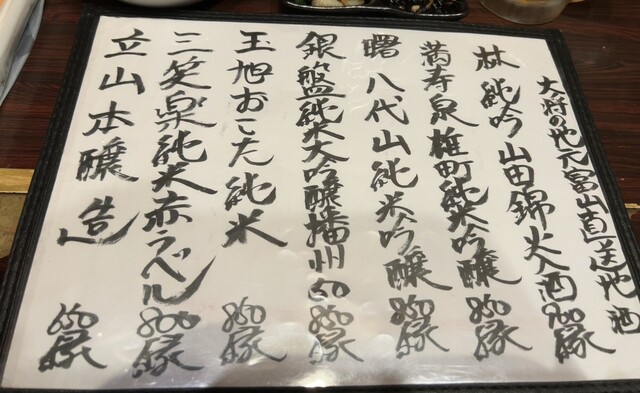 大将の地元富山直送地酒
林 純吟 山田錦火入酒 900縁
満寿泉 雄町純米吟醸 850縁
曙 八代山純米吟醸 850縁
銀盤純米大吟醸播州50 850縁
玉旭おこた純米 850縁
三笑楽純米赤ラベル 800縁
立山本醸造 650縁